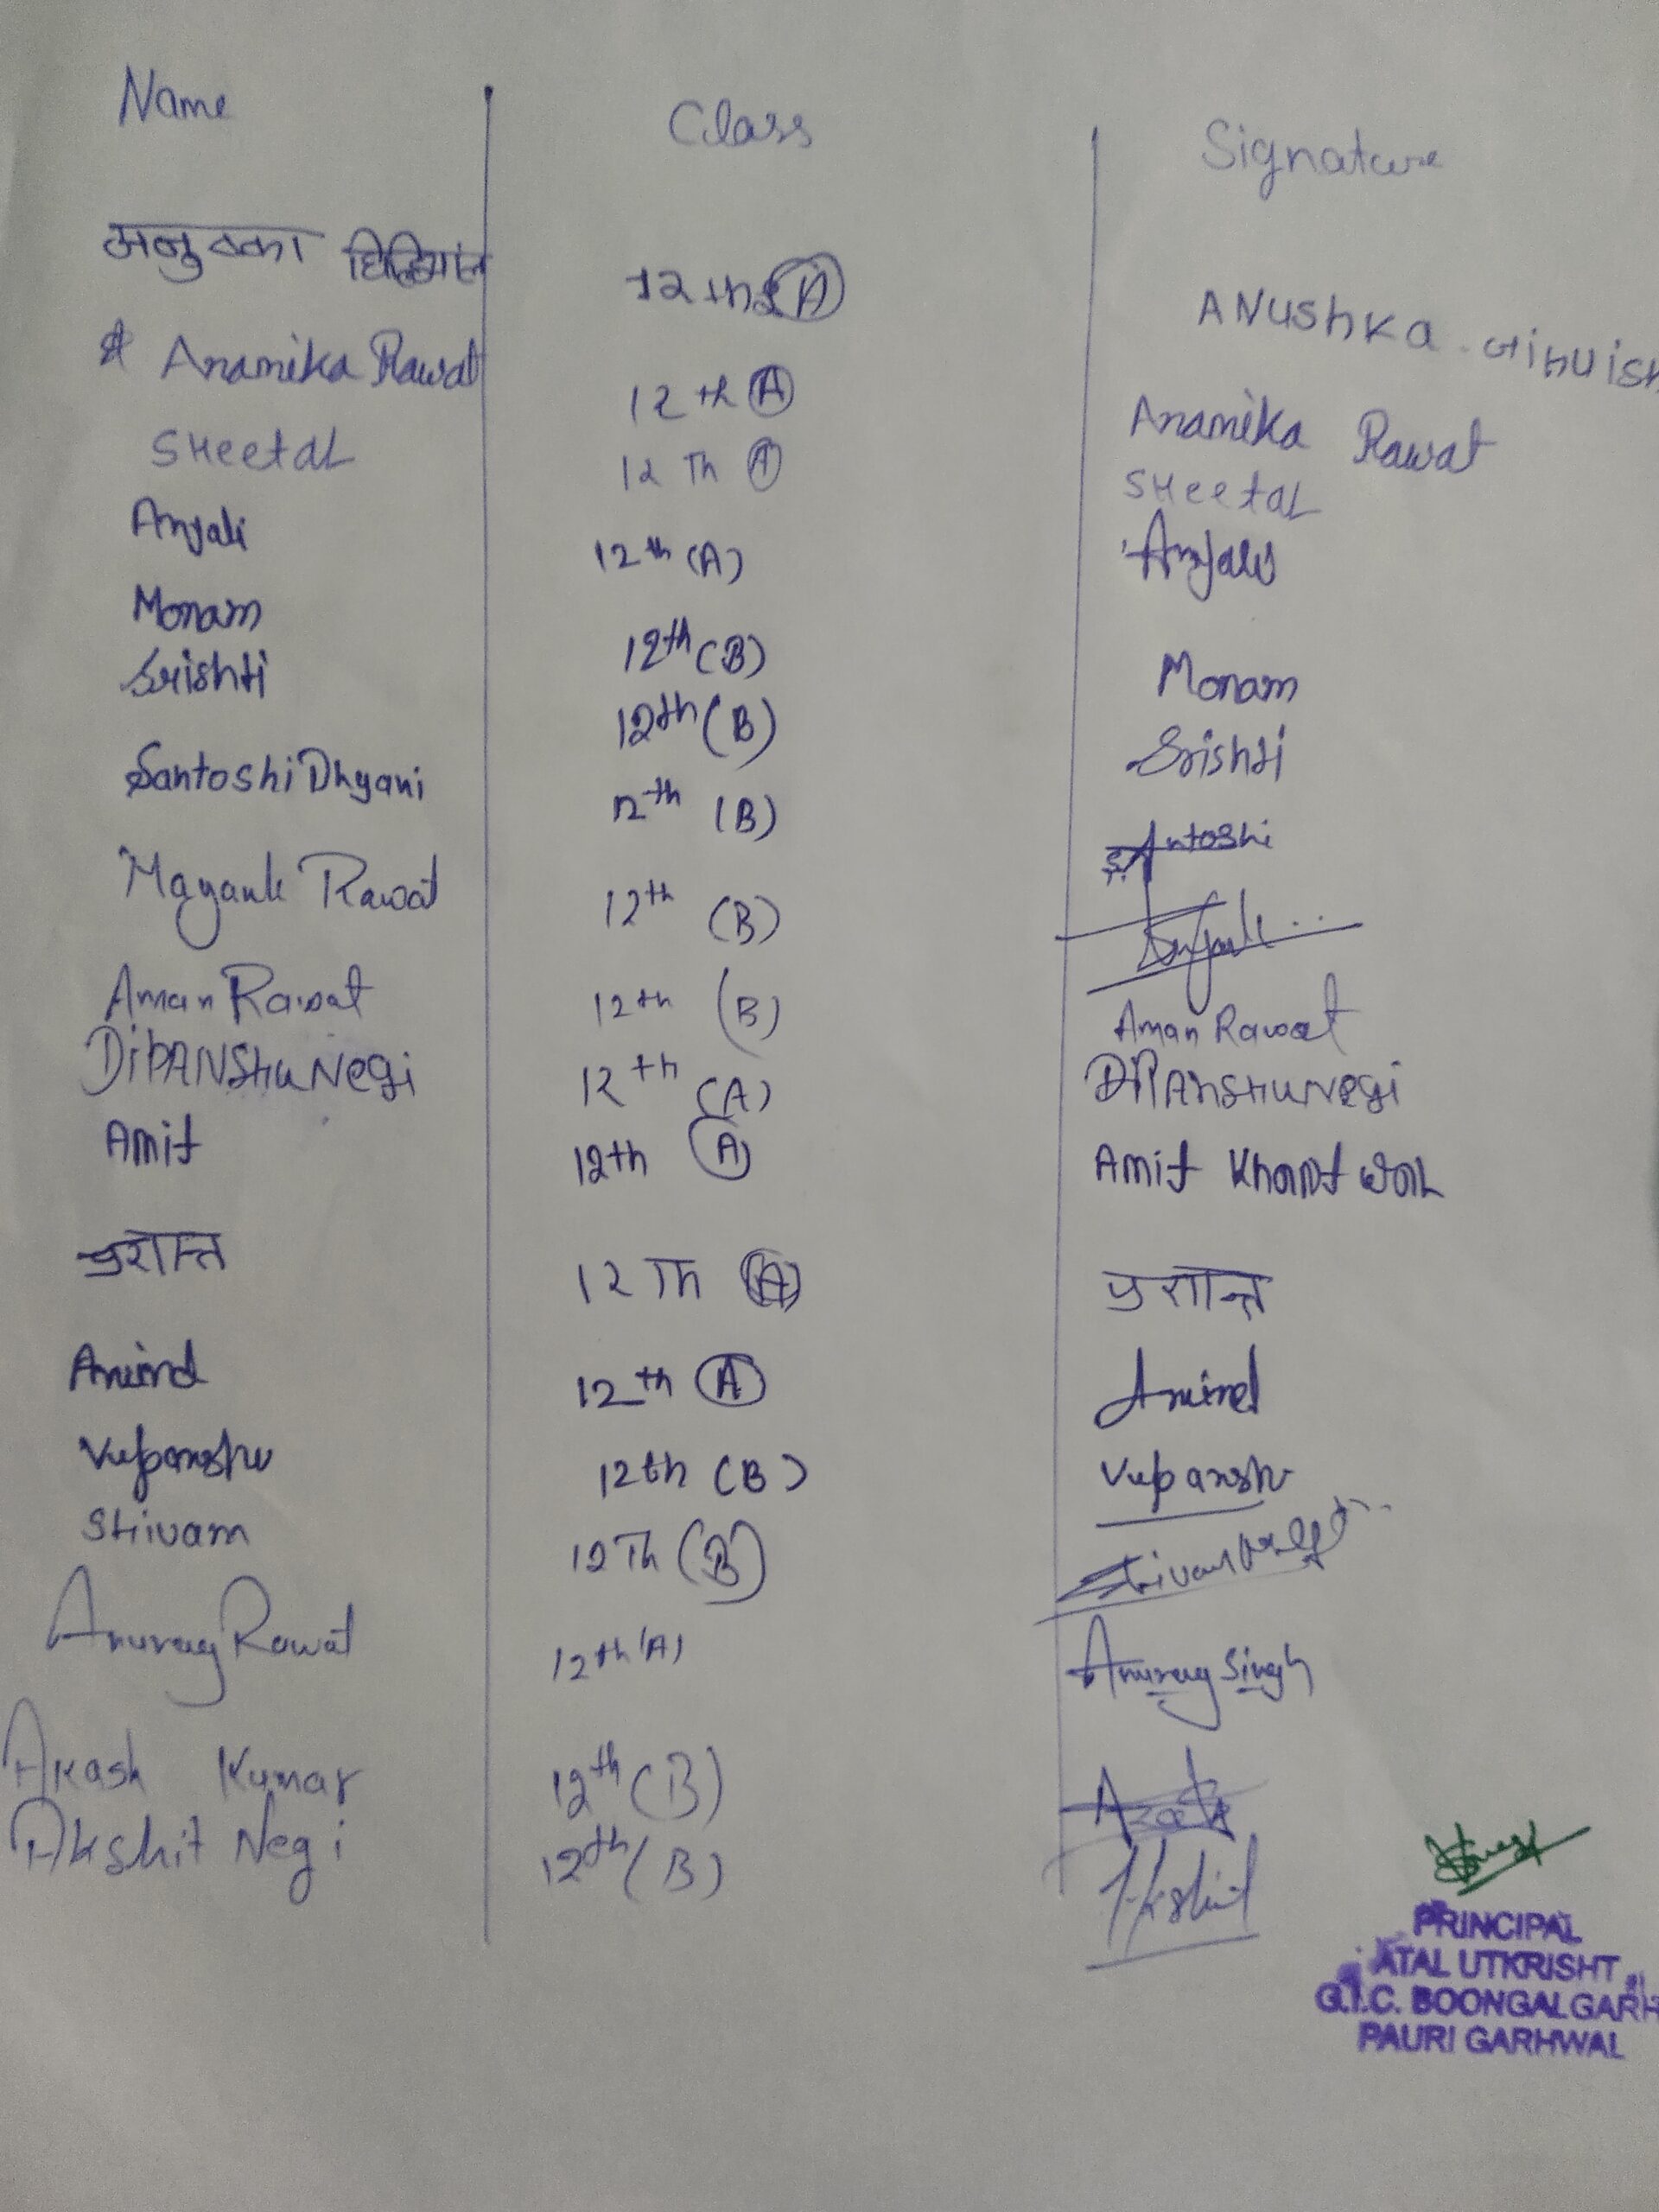 Name Class Signature
अनुष्का 12th (A) ANushKa
Anamika Rawat 12th (A) Anamika Rawat
SHeetaL 12Th (A) SHeetaL
Anjali 12th (A) Anjali
Monam 12th (B) Monam
Srishti 12th (B) Srishti
Santoshi Dhyani 12th (B) SAntoshi
Mayank Rawat 12th (B)
Aman Rawat 12th (B) Aman Rawat
DiPANSHu Negi 12th (A) DiPANSHU Negi
Amit 12th (A) Amit
प्रशान्त 12Th (A) प्रशान्त
12th (A)
12th (B)
SHivam 12Th (B)
Anurag Rawat 12th (A) Anurag Singh
Akash Kumar 12th (B)
Akshit Negi 12th (B) Akshit
PRINCIPAL
ATAL UTKRISHT
G.I.C. BOONGALGARH
PAURI GARHWAL